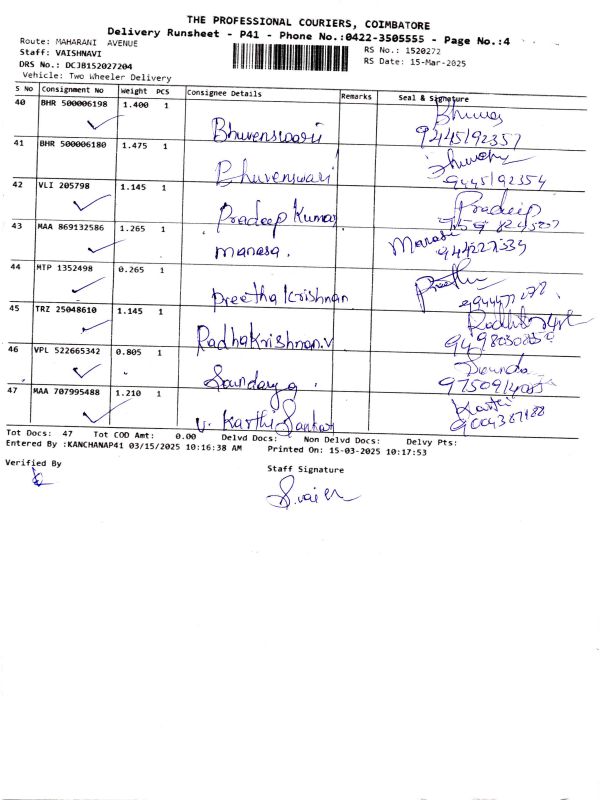 THE PROFESSIONAL COURIERS, COIMBATORE
Delivery Runsheet - P41 - Phone No.:0422-3505555 - Page No.:4
Route: MAHARANI AVENUE
RS No.: 1520272
Staff: VAISHNAVI
RS Date: 15-Mar-2025
DRS No.: DCJB152027204
Vehicle: Two Wheeler Delivery
S No Consignment No Weight PCS Consignee Details Remarks Seal & Signature
40 BHR 500006198 1.400 1 Bhuvenswari
9445192357
41 BHR 500006180 1.475 1 Bhuvenswari
9445192354
42 VLI 205798 1.145 1 Pradeep Kumar Pradeep
43 MAA 869132586 1.265 1 manasa. Manasa
44 MTP 1352498 0.265 1 Preetha Krishnan
45 TRZ 25048610 1.145 1 RadhaKrishnan.V
46 VPL 522665342 0.805 1
47 MAA 707995488 1.210 1 V. Karthi Karthi
Tot Docs: 47 Tot COD Amt: 0.00 Delvd Docs: Non Delvd Docs: Delvy Pts:
Entered By :KANCHANAP41 03/15/2025 10:16:38 AM Printed On: 15-03-2025 10:17:53
Verified By
Staff Signature